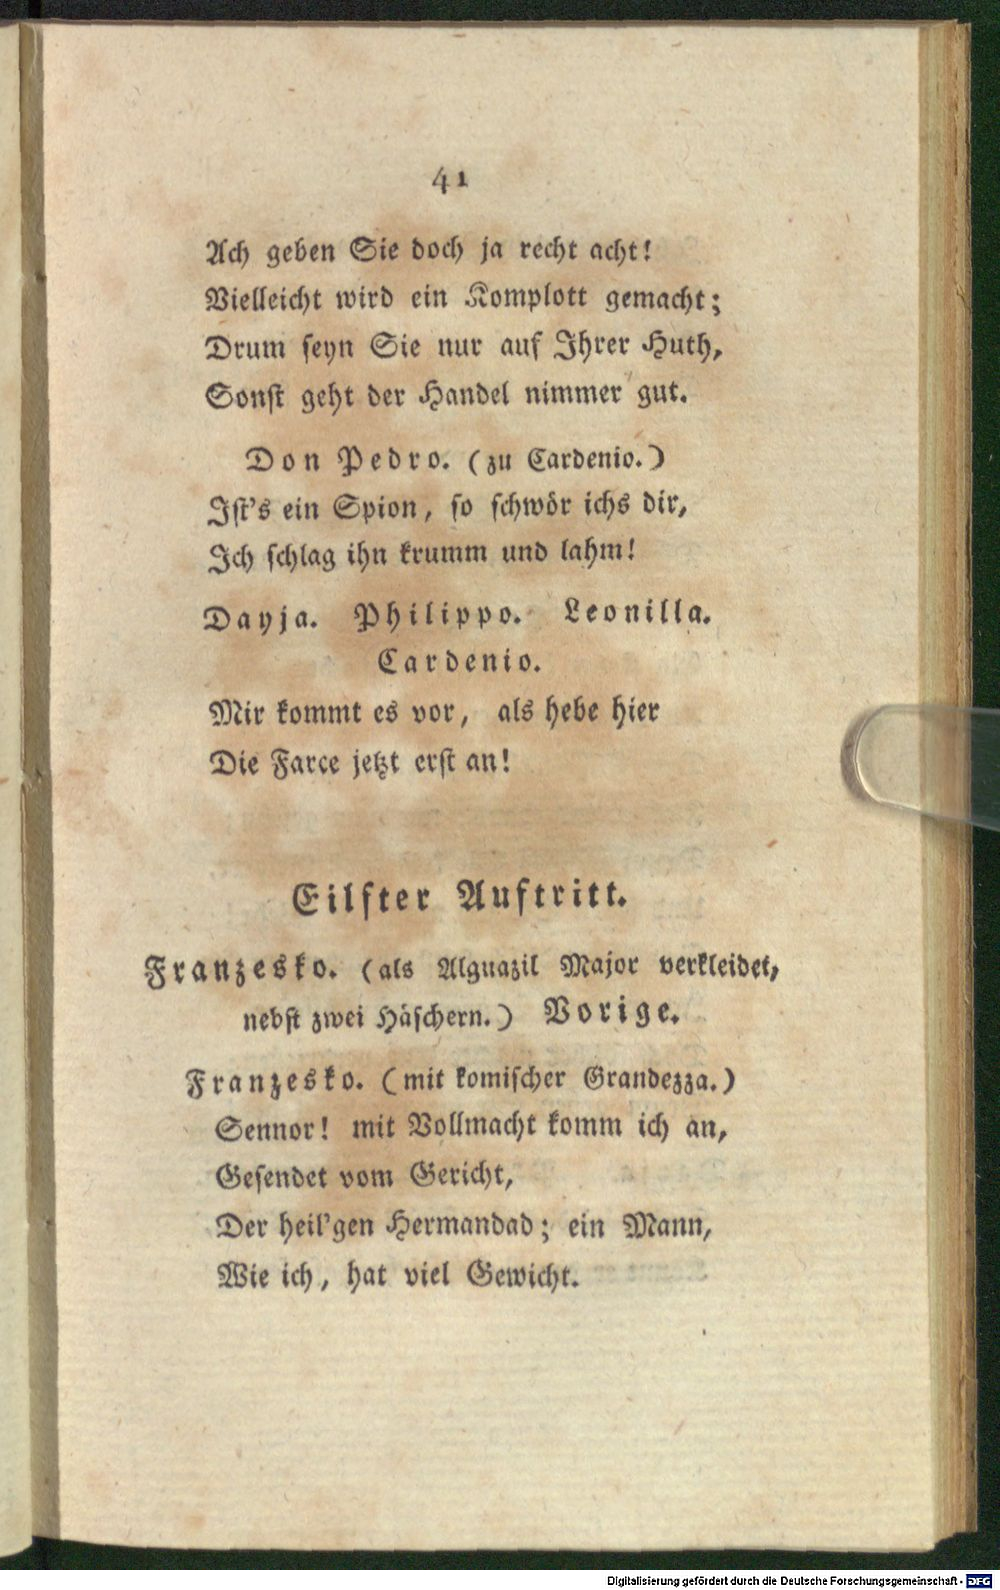 41
Ach geben Sie doch ja recht acht!
Vielleicht wird ein Komplott gemacht;
Drum seyn Sie nur auf Ihrer Huth,
Sonst geht der Handel nimmer gut.
Don Pedro. (zu Cardenio.)
Ist's ein Spion, so schwör ichs dir,
Ich schlag ihn krumm und lahm!
Dayja. Philippo. Leonilla.
Cardenio.
Mir kommt es vor, als hebe hier
Die Farce jetzt erst an!
Eilfter Auftritt.
Franzesko. (als Alguazil Major verkleidet,
nebst zwei Häschern.) Vorige.
Franzesko. (mit komischer Grandezza.)
Sennor! mit Vollmacht komm ich an,
Gesendet vom Gericht,
Der heil'gen Hermandad; ein Mann,
Wie ich, hat viel Gewicht.
Digitalisierung gefördert durch die Deutsche Forschungsgemeinschaft - DFG